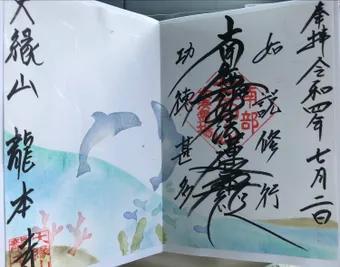 奉拝 令和四年 七月二日
如説修行
南無妙法蓮華経
功徳甚多
南部
大縁山 龍本寺